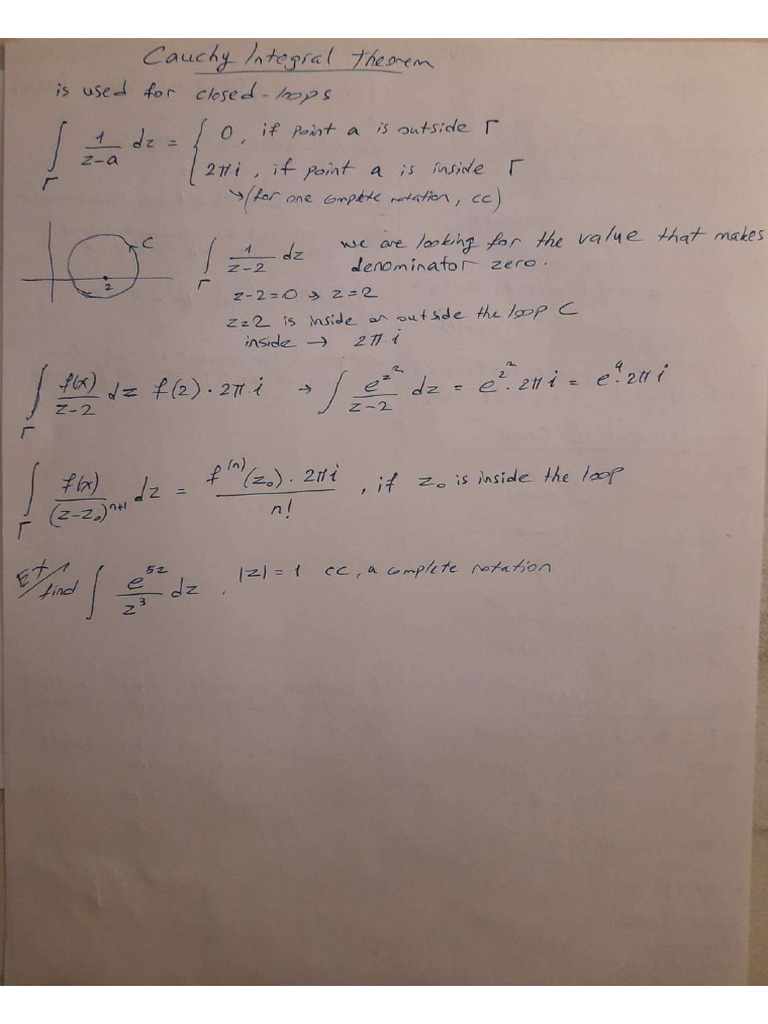 Cauchy Integral Theorem
is used for closed-loops
∫_Γ 1/(z-a) dz = { 0, if point a is outside Γ
2πi, if point a is inside Γ
↳ (for one complete rotation, cc)
C
2
∫_Γ 1/(z-2) dz we are looking for the value that makes
denominator zero.
z-2=0 → z=2
z=2 is inside or outside the loop C
inside → 2π.i
∫_Γ f(x)/(z-2) dz f(2)·2π.i → ∫ e^(z^2)/(z-2) dz = e^(2^2)·2πi = e^4·2πi
∫_Γ f(x)/(z-z₀)^(n+1) dz = f^(n)(z₀)·2πi/n! , if z₀ is inside the loop
Ex/ find ∫ e^(5z)/z^3 dz , |z|=1 cc, a complete rotation